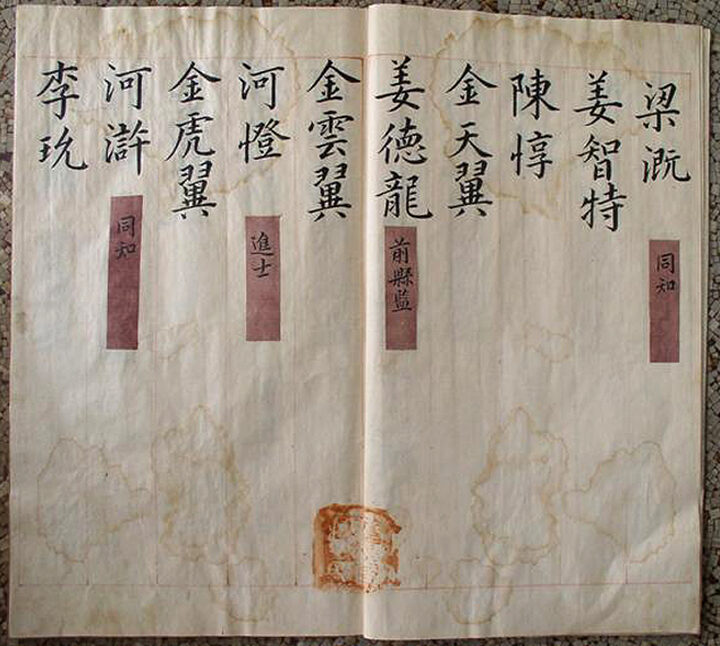 梁漑
同知
姜智特
陳惇
金天翼
姜德龍
前縣監
金雲翼
河憕
進士
金虎翼
河滸
同知
李玧